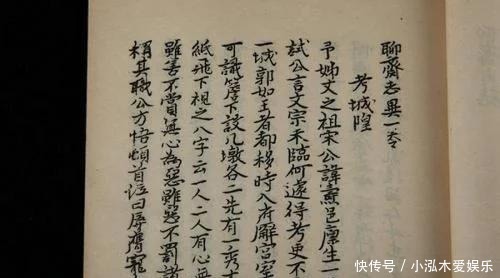 聊齋志異一卷
考城隍
予姊丈之祖宋公諱燾邑廪生一
試公言文宗未臨何遽得考吏不
一城郭如王者都移時入府廨宮室
可識簷下設几墩各二先有一秀才
紙飛下視之八字云一人二人有心無
雖善不賞無心為惡雖惡不罰諸
稱其職公方悟頓首泣曰辱膺寵
快传号 / 小泓木爱娱乐